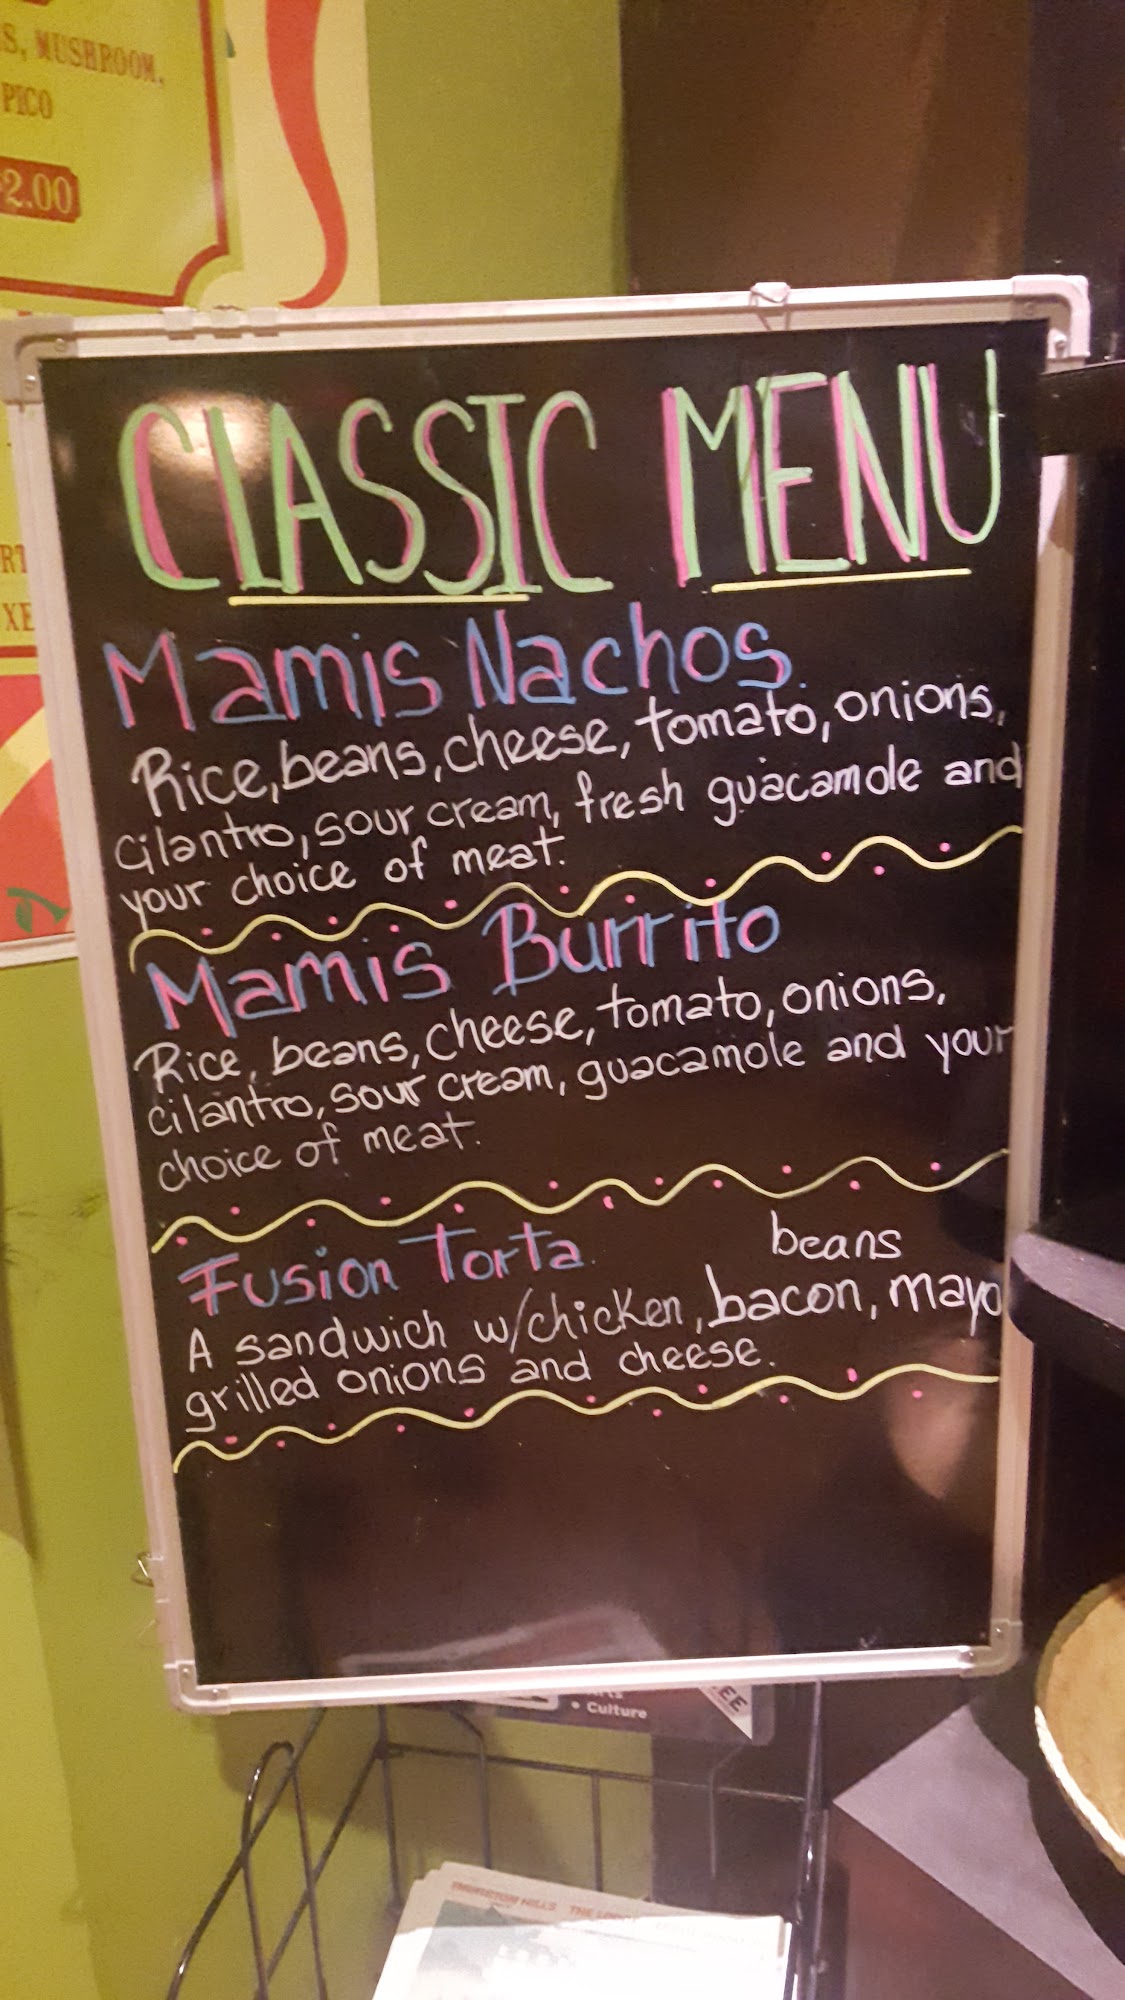 S, MUSHROOM,
PICO
2.00
CLASSIC MENU
Mamis Nachos
Rice, beans, cheese, tomato, onions,
cilantro, sour cream, fresh guacamole and
your choice of meat.
Mamis Burrito
Rice, beans, cheese, tomato, onions,
cilantro, sour cream, guacamole and your
choice of meat.
Fusion Torta
beans
A sandwich w/chicken, bacon, mayo
grilled onions and cheese.
• Culture
THURSTON HILLS THE